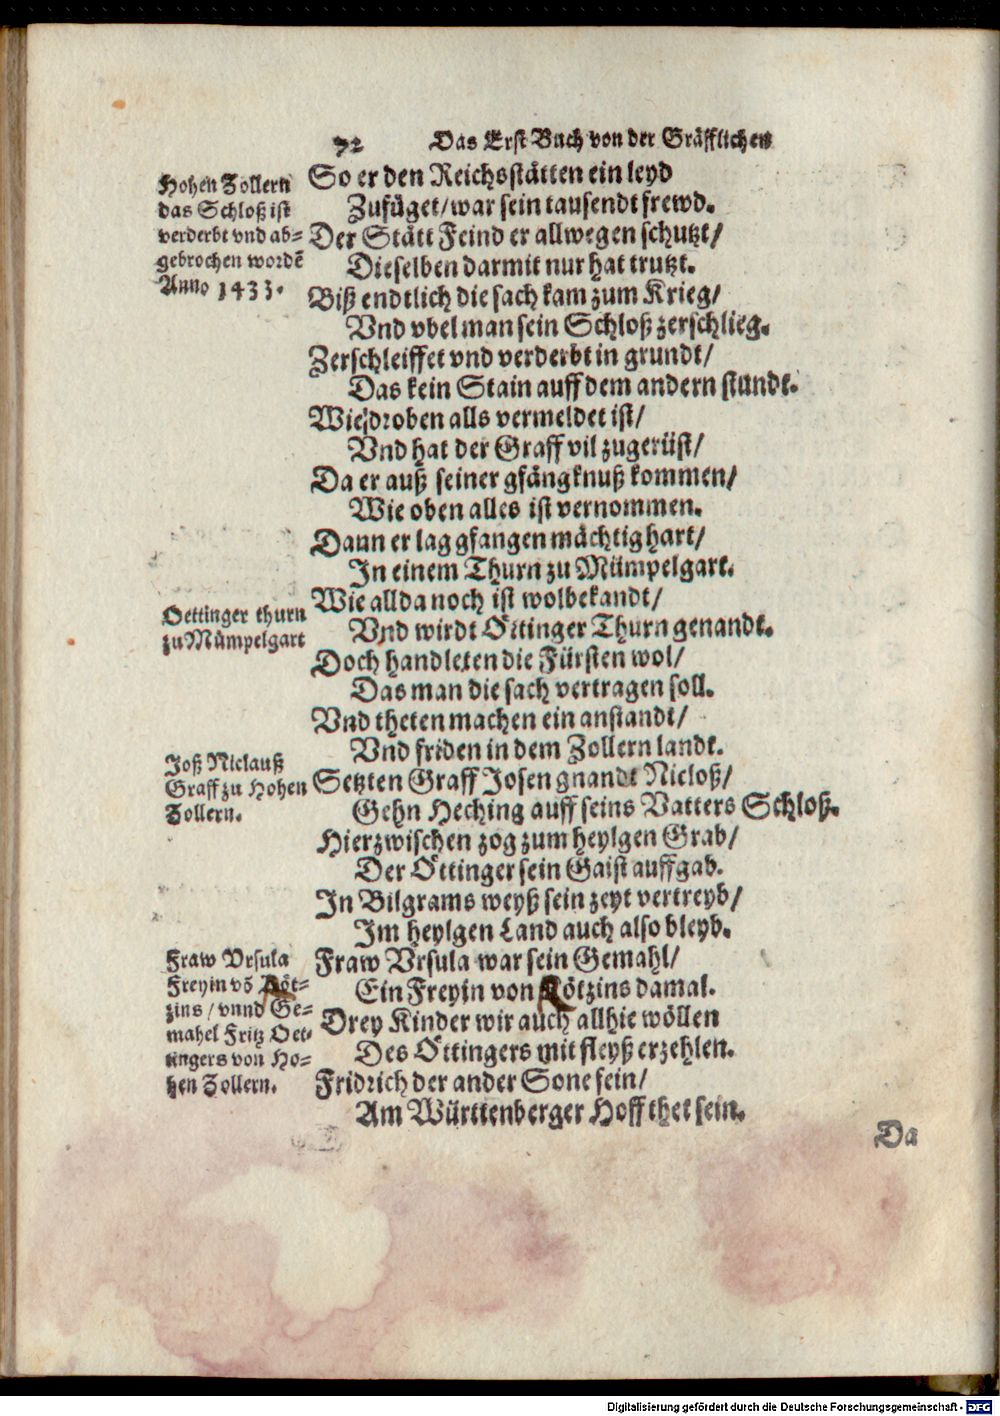 72 Das Erst Buch von der Gräfflichen
Hohen Zollern
das Schloß ist
verderbt vnd ab-
gebrochen wordẽ
Anno 1433.
So er den Reichsstätten ein leyd
Zufüget/ war sein tausendt frewd.
Der Stätt Feind er allwegen schutzt/
Dieselben darmit nur hat trutzt.
Biß endtlich die sach kam zum Krieg/
Vnd vbel man sein Schloß zerschlieg.
Zerschleiffet vnd verderbt in grundt/
Das kein Stain auff dem andern stundt.
Wie droben alls vermeldet ist/
Vnd hat der Graff vil zugerüst/
Da er auß seiner gfängknuß kommen/
Wie oben alles ist vernommen.
Dann er lag gfangen mächtig hart/
In einem Thurn zu Mümpelgart.
Oettinger thurn
zu Mümpelgart
Wie allda noch ist wolbekandt/
Vnd wirdt Öttinger Thurn genandt.
Doch handleten die Fürsten wol/
Das man die sach vertragen soll.
Vnd theten machen ein anstandt/
Vnd friden in dem Zollern landt.
Joß Niclauß
Graff zu Hohen
Zollern.
Setzten Graff Josen gnandt Nicloß/
Gehn Heching auff seins Vatters Schloß.
Hierzwischen zog zum heylgen Grab/
Der Öttinger sein Gaist auffgab.
In Bilgrams weyß sein zeyt vertreyb/
Im heylgen Land auch also bleyb.
Fraw Vrsula
Freyin võ Rötz-
zins / vnnd Ge-
mahel Fritz Oet-
tingers von Ho-
hen Zollern.
Fraw Vrsula war sein Gemahl/
Ein Freyin von Rötzins damal.
Drey Kinder wir auch allhie wöllen
Des Öttingers mit fleyß erzehlen.
Fridrich der ander Sone sein/
Am Württenberger Hoff thet sein.
Da
Digitalisierung gefördert durch die Deutsche Forschungsgemeinschaft - DFG